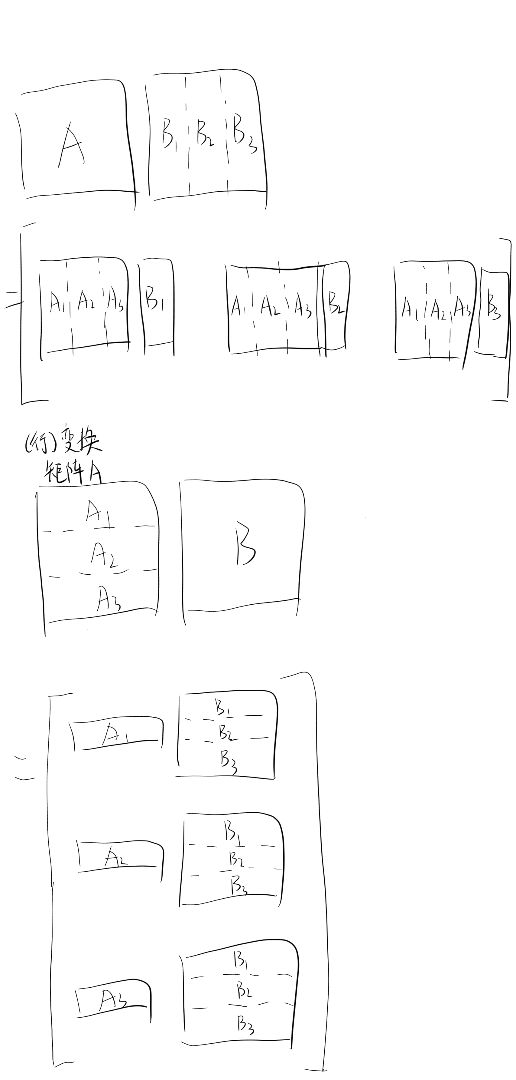 A B₁ B₂ B₃
= A₁ A₂ A₃ B₁ A₁ A₂ A₃ B₂ A₁ A₂ A₃ B₃
(行)变换
矩阵A
A₁
A₂ B
A₃
B₁
= A₁ B₂
B₃
B₁
A₂ B₂
B₃
B₁
A₃ B₂
B₃